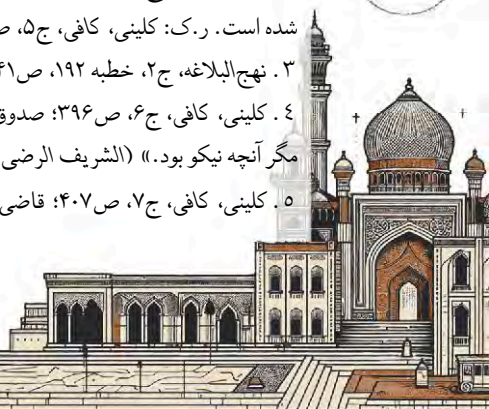 شده است. ر.ک: کلینی، کافی، ج۵، ص
۳. نهج‌البلاغه، ج۲، خطبه ۱۹۲، ص۴۱
٤. کلینی، کافی، ج۶، ص۳۹۶؛ صدوق
مگر آنچه نیکو بود.» (الشریف الرضی
۵. کلینی، کافی، ج۷، ص۴۰۷؛ قاضی